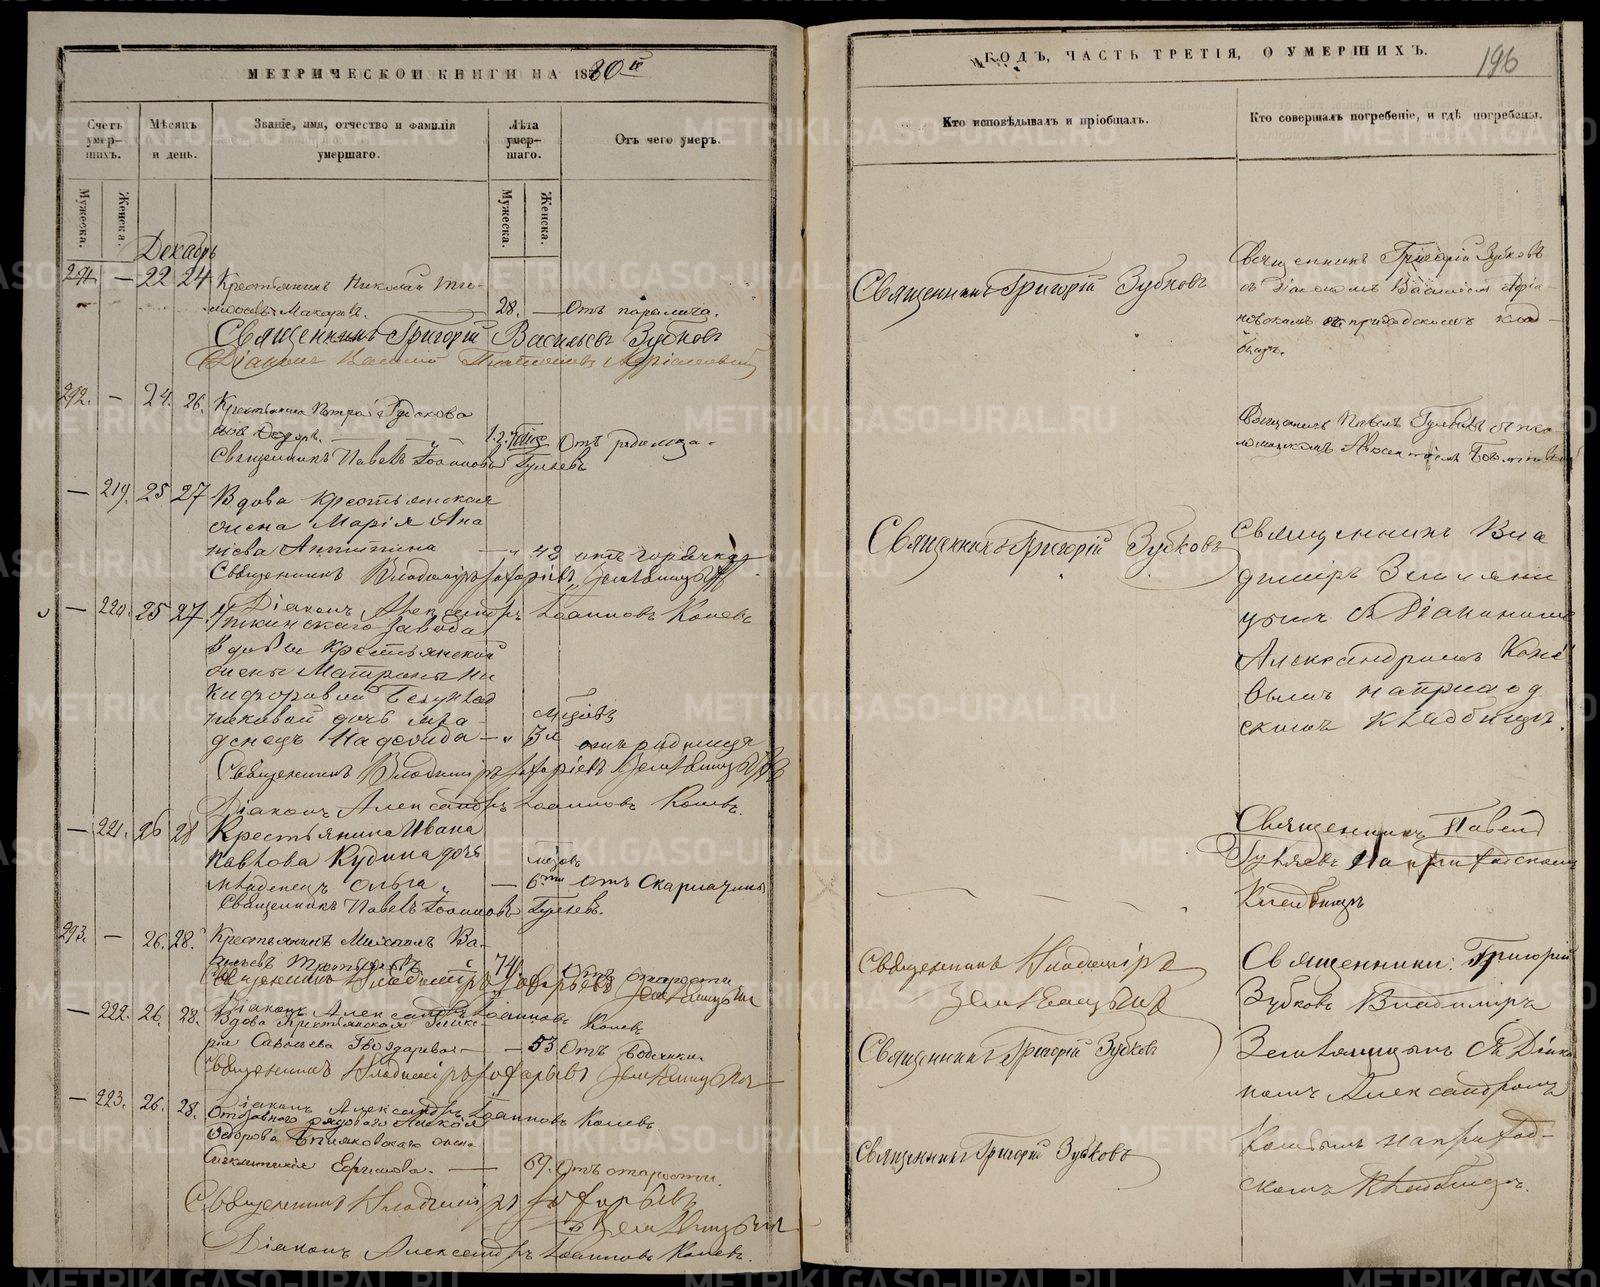 МЕТРИЧЕСКОЙ КНИГИ НА 1880й
Счетъ умер-шихъ.
Мѣсяцъ и день.
Званіе, имя, отчество и фамилія умершаго.
Лѣта умер-шаго.
Отъ чего умеръ.
Мужеска.
Женска.
Мужеска.
Женска.
Декабрь
291 — 22 24 Крестьянинъ Николай Ти-
моѳеевъ Макаровъ. 28. — Отъ паралича.
Священникъ Григорій Васильевъ Зубковъ
Діаконъ
292. — 24. 26. Крестьянина Петра Гудскова
сынъ Ѳедоръ. Отъ родимца.
Священникъ Павелъ Іоанновъ Гуляевъ
— 219. 25 27 Вдова крестьянская
жена Марія Ана
нiева Антипина — „ 42 отъ горячки
Священникъ Владиміръ Захаріевъ Земляницынъ
Діаконъ Александръ Іоанновъ Коневъ
— 220. 25 27. Уткинскаго завода
вдовы крестьянской
жены Матроны Ни
кифоровой
дочь мла-
денецъ Надежда — „ 3 м отъ родимца
Священникъ Владиміръ Захаріевъ Земляницынъ
Діаконъ Александръ Іоанновъ Коневъ.
— 221. 26 28 Крестьянина Ивана
Павлова Кудина дочь
младенецъ Ольга „ — 6 отъ Скарлатины
Священникъ Павелъ Іоанновъ Гуляевъ.
293. — 26. 28. Крестьянинъ Михаилъ Ва-
сильевъ 74 Отъ старости
Священникъ Владиміръ Захарьевъ Земляницынъ
Діаконъ Александръ Іоанновъ Коневъ
— 222. 26. 28. Вдова крестьянская Глике-
рія Савельева — 53 Отъ водянки.
Священникъ Владиміръ Захарьевъ Земляницынъ
Діаконъ Александръ Іоанновъ Коневъ.
— 223. 26. 28. Отставного рядоваго Алексѣя
Ѳедорова жена
Сигклитикія Ефимова. — 69. Отъ старости.
Священникъ Владиміръ Захарьевъ
Земляницынъ
Діаконъ Александръ Іоанновъ Коневъ.
ГОДЪ, ЧАСТЬ ТРЕТІЯ, О УМЕРШИХЪ.
196
Кто исповѣдывалъ и пріобщалъ.
Кто совершалъ погребеніе, и гдѣ погребены.
Священникъ Григорій Зубковъ
Священникъ Григорій Зубковъ
съ Діакономъ Василіемъ Адріа-
новскимъ на приходскомъ клад-
бищѣ.
Священникъ Павелъ Гуляевъ съ пса-
ломщикомъ
Священникъ Григорій Зубковъ
Священникъ Вла
диміръ Земляни
цынъ съ Діакономъ
Александромъ Коне
вымъ на приход
скомъ кладбищѣ.
Священникъ Павелъ
Гуляевъ на приходскомъ
Кладбищѣ
Священникъ Владиміръ
Земляницынъ
Священникъ Григорій Зубковъ
Священникъ Григорій Зубковъ
Священники: Григорій
Зубковъ Владиміръ
Земляницынъ съ Діако
номъ Александромъ
Коневымъ на приход-
скомъ Кладбищѣ.
METRIKI.GASO-URAL.RU